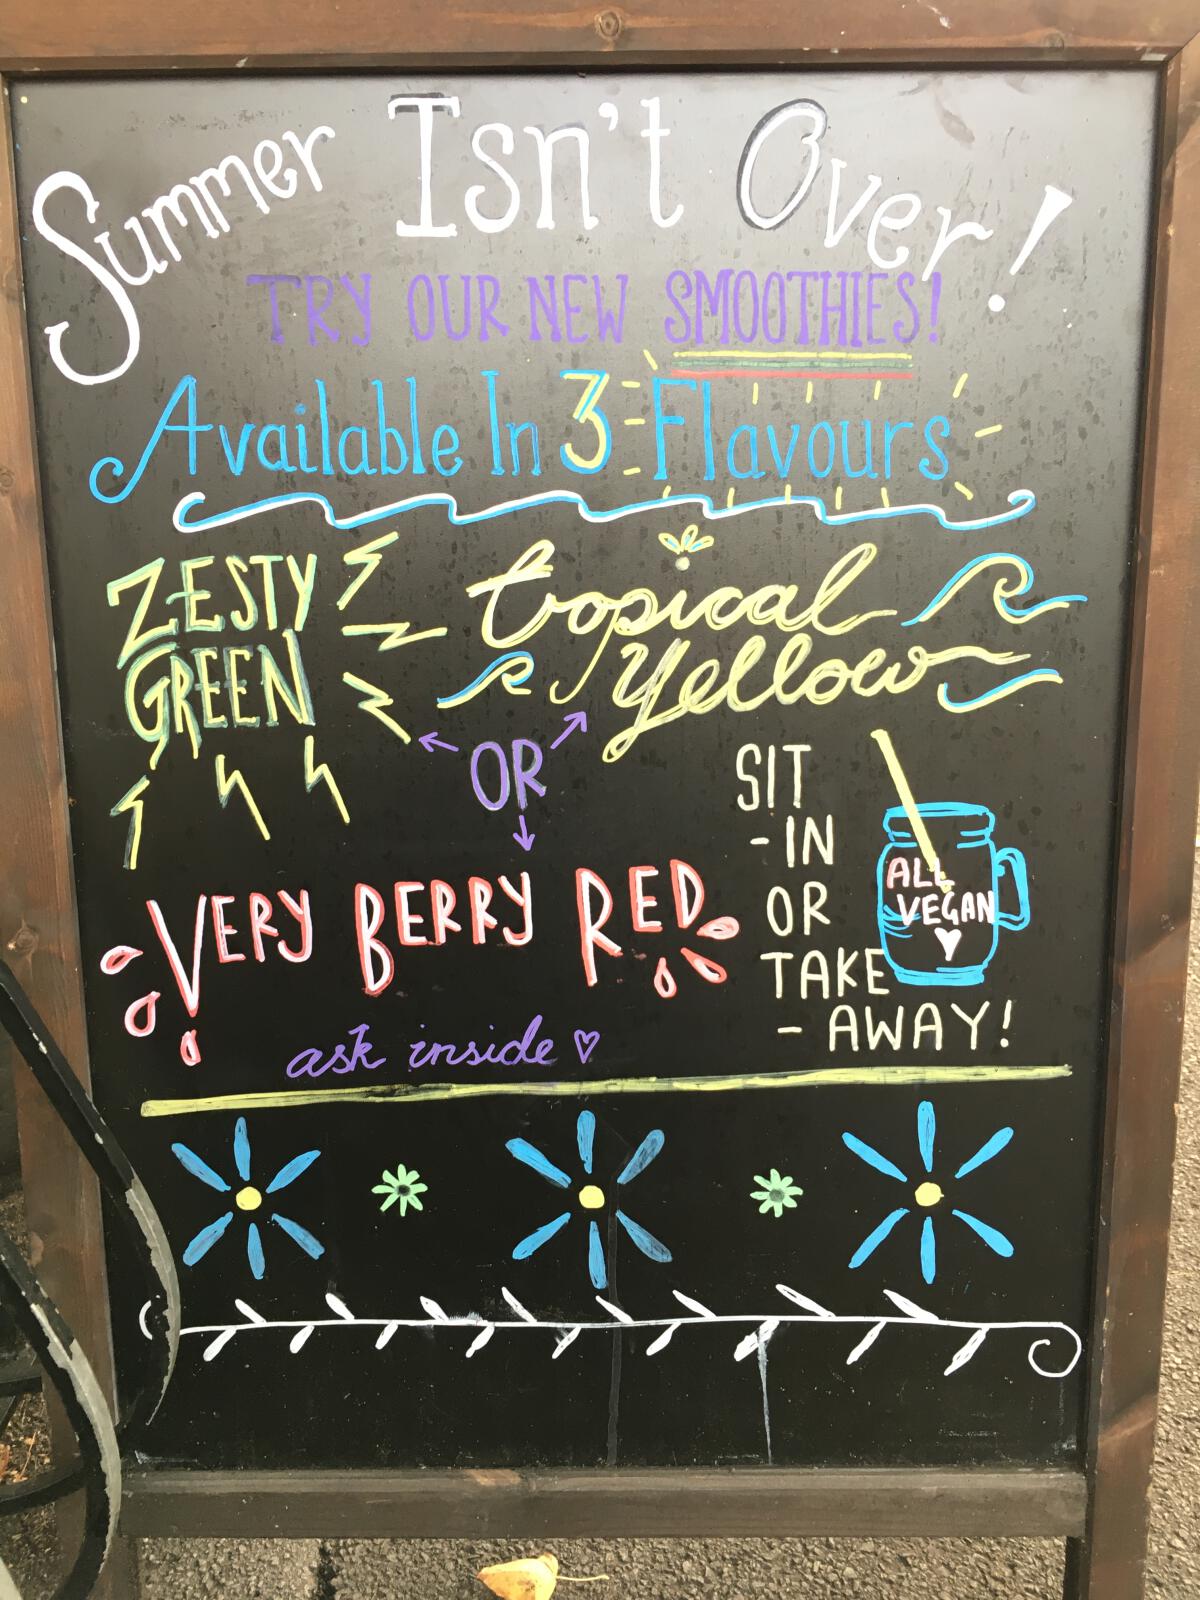 Summer Isn't Over!
TRY OUR NEW SMOOTHIES!
Available In 3 Flavours
ZESTY
GREEN
tropical
Yellow
OR
VERY BERRY RED
ask inside
SIT
-IN
OR
TAKE
- AWAY!
ALL
VEGAN